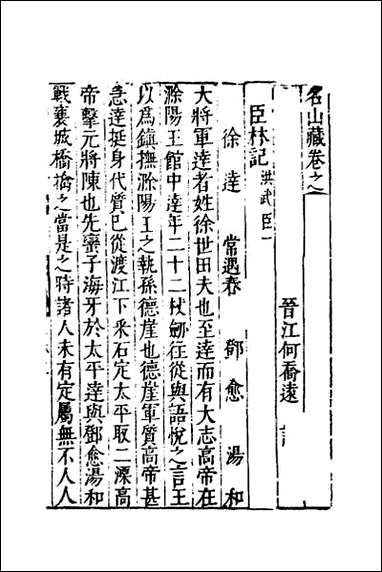 名山藏卷之
晉江何喬遠
臣林記 洪武臣一
徐達 常遇春 鄧愈 湯和
大將軍達者姓徐世田夫也至達而有大志高帝在
滁陽王館中達年二十二杖劒往從與語悅之言王
以爲鎮撫滁陽王之執孫德崖也德崖軍質高帝甚
急達挺身代質巳從渡江下采石定太平取二溧高
帝擊元將陳也先蠻子海牙於太平達與鄧愈湯和
戰襄城橋擒之當是之時諸人未有定屬無不人人